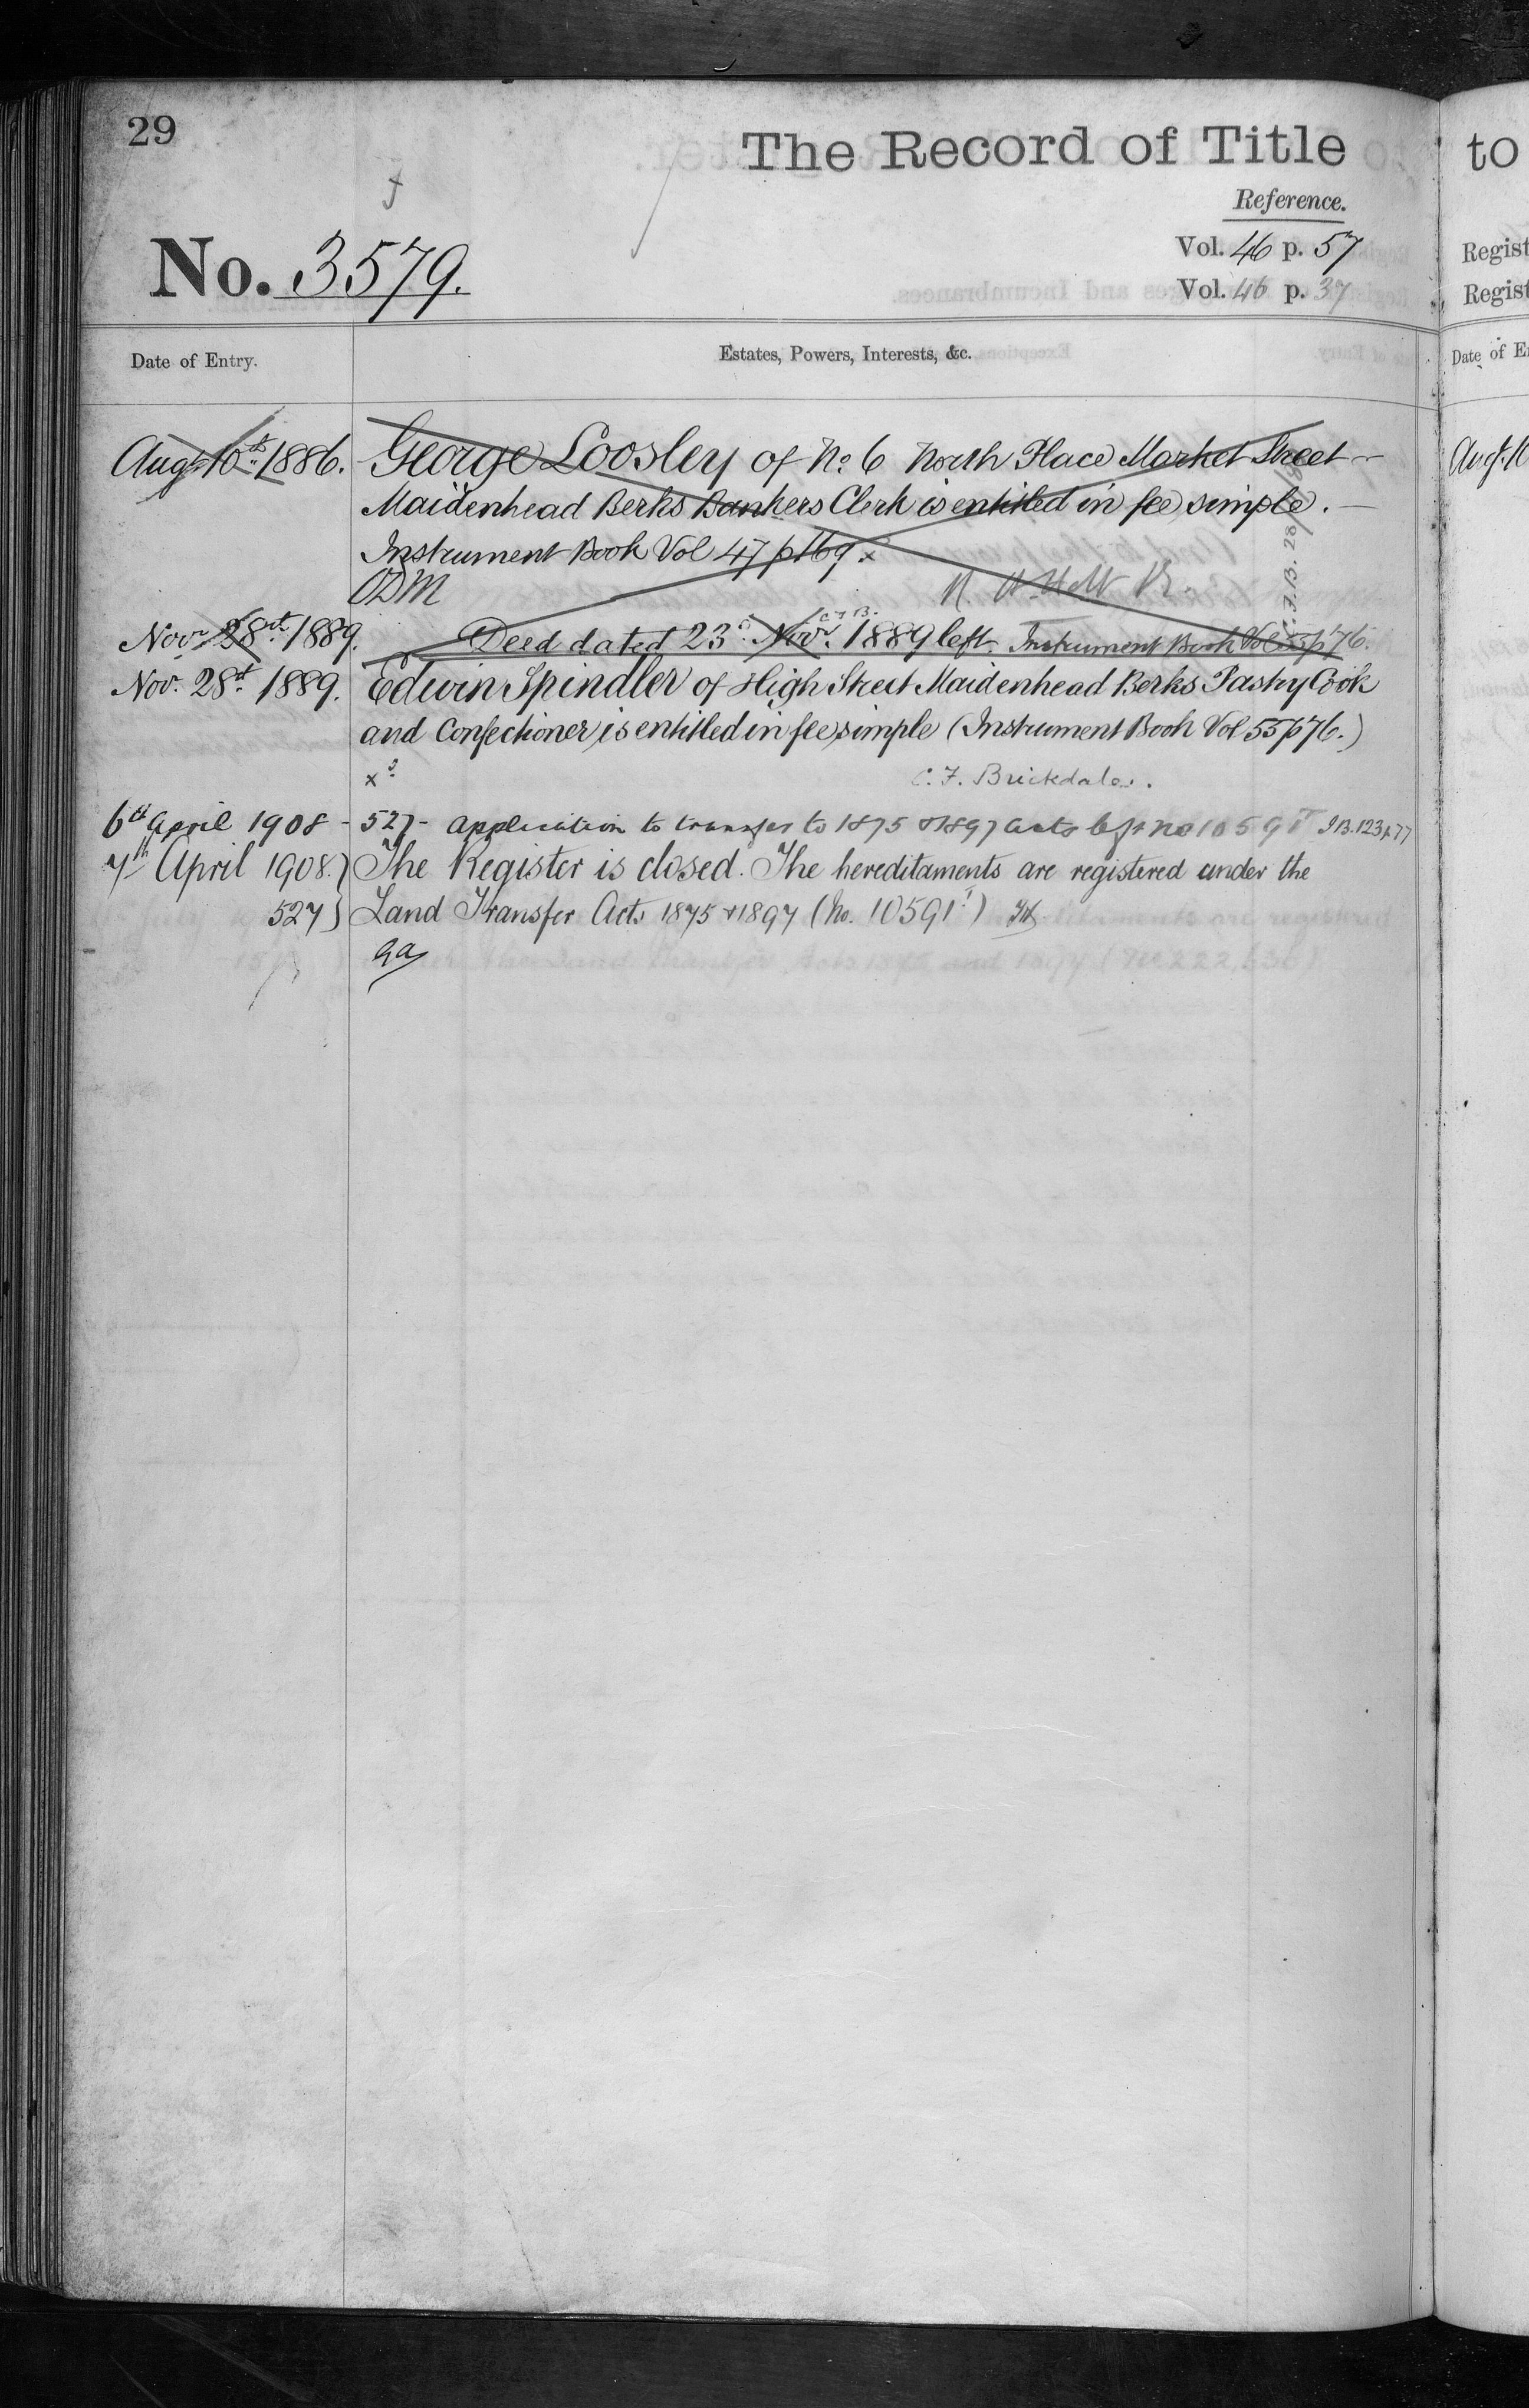 29
The Record of Title
to
Reference.
No. 3579.
Vol. 46 p. 57
Vol. 46 p. 37
Regist
Regist
Date of Entry.
Estates, Powers, Interests, &c.
Date of E
Augt 10th 1886. George Loosley of No 6 North Place Market Street
Maidenhead Berks Bankers Clerk is entitled in fee simple.
Instrument Book Vol 47 p 169 x
ODM
C.F.B.
Novr 28th 1889. Deed dated 23d Novr 1889 left. Instrument Book Vol 55 p 76.
Nov. 28th 1889. Edwin Spindler of High Street Maidenhead Berks Pastry Cook
and Confectioner is entitled in fee simple (Instrument Book Vol 55 p 76.)
C. F. Brickdale.
6th April 1908 - 527 - Application to transfer to 1875 & 1897 Acts left no 10591 I.B. 123 p. 77
7th April 1908.) The Register is closed. The hereditaments are registered under the
527) Land Transfer Acts 1875 & 1897 (No. 10591)
Augt. 10